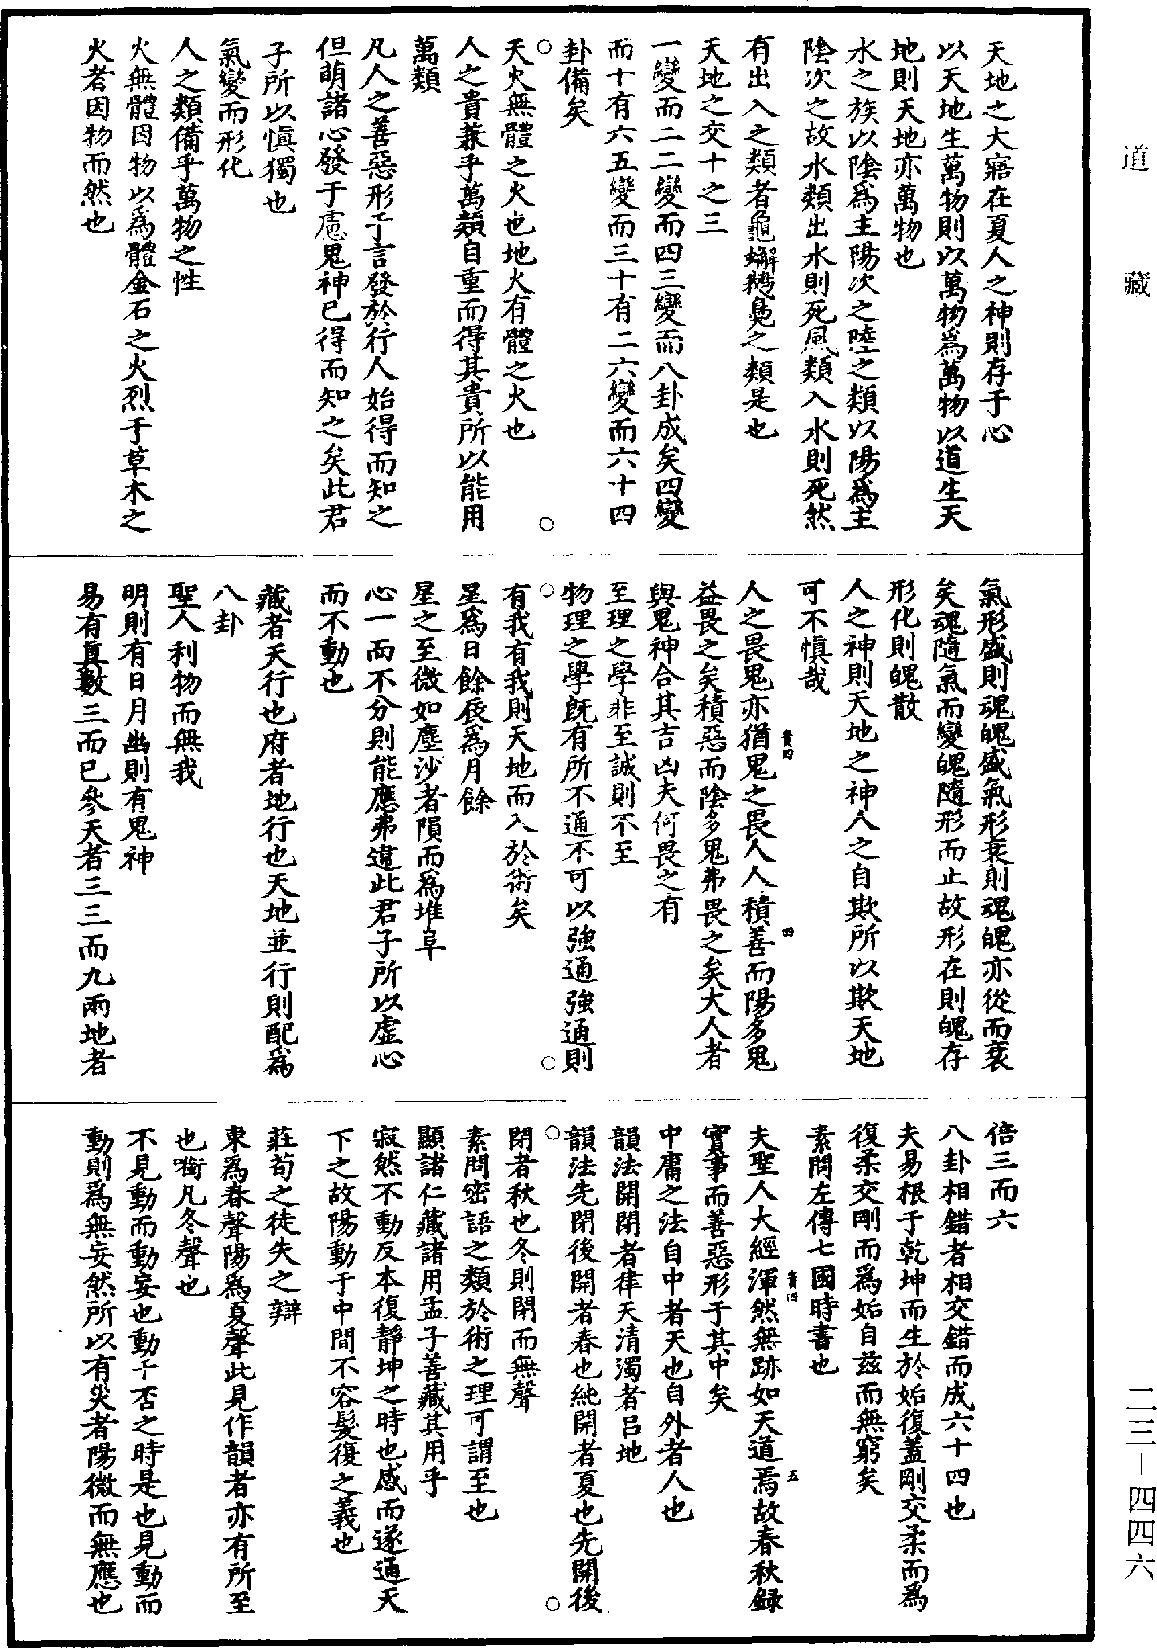 天地之大寤在夏人之神則存于心
以天地生萬物則以萬物爲萬物以道生天
地則天地亦萬物也
水之族以陰爲主陽次之陸之類以陽爲主
陰次之故水類出水則死風類入水則死然
有出入之類者龜蠏鵝鳧之類是也
天地之交十之三
一變而二二變而四三變而八卦成矣四變
而十有六五變而三十有二六變而六十四
卦備矣
○○
天火無體之火也地火有體之火也
人之貴兼乎萬類自重而得其貴所以能用
萬類
凡人之善惡形于言發於行人始得而知之
但萌諸心發于慮鬼神已得而知之矣此君
子所以慎獨也
氣變而形化
人之類備乎萬物之性
火無體因物以爲體金石之火烈于草木之
火者因物而然也
氣形盛則魂魄盛氣形衰則魂魄亦從而衰
矣魂隨氣而變魄隨形而止故形在則魄存
形化則魄散
人之神則天地之神人之自欺所以欺天地
可不慎哉
人之畏鬼亦猶鬼之畏人人積善而陽多鬼
益畏之矣積惡而陰多鬼弗畏之矣大人者
與鬼神合其吉凶夫何畏之有
至理之學非至誠則不至
物理之學既有所不通不可以強通強通則
○○
有我有我則天地而入於術矣
星爲日餘辰爲月餘
星之至微如塵沙者隕而爲堆阜
心一而不分則能應弗違此君子所以虛心
而不動也
藏者天行也府者地行也天地並行則配爲
八卦
聖人利物而無我
明則有日月幽則有鬼神
易有真數三而已參天者三三而九兩地者
倍三而六
八卦相錯者相交錯而成六十四也
夫易根于乾坤而生於姤復蓋剛交柔而爲
復柔交剛而爲姤自茲而無窮矣
素問左傳七國時書也
夫聖人大經渾然無跡如天道焉故春秋録
實事而善惡形于其中矣
中庸之法自中者天也自外者人也
韻法開閉者律天清濁者呂地
韻法先閉後開者春也純開者夏也先開後
○○
閉者秋也冬則閉而無聲
素問密語之類於術之理可謂至也
顯諸仁藏諸用孟子善藏其用乎
寂然不動反本復靜坤之時也感而遂通天
下之故陽動于中間不容髮復之義也
莊荀之徒失之辯
東爲春聲陽爲夏聲此見作韻者亦有所至
也銜凡冬聲也
不見動而動妄也動于否之時是也見動而
動則爲無妄然所以有災者陽微而無應也
道
藏
二三—四四六